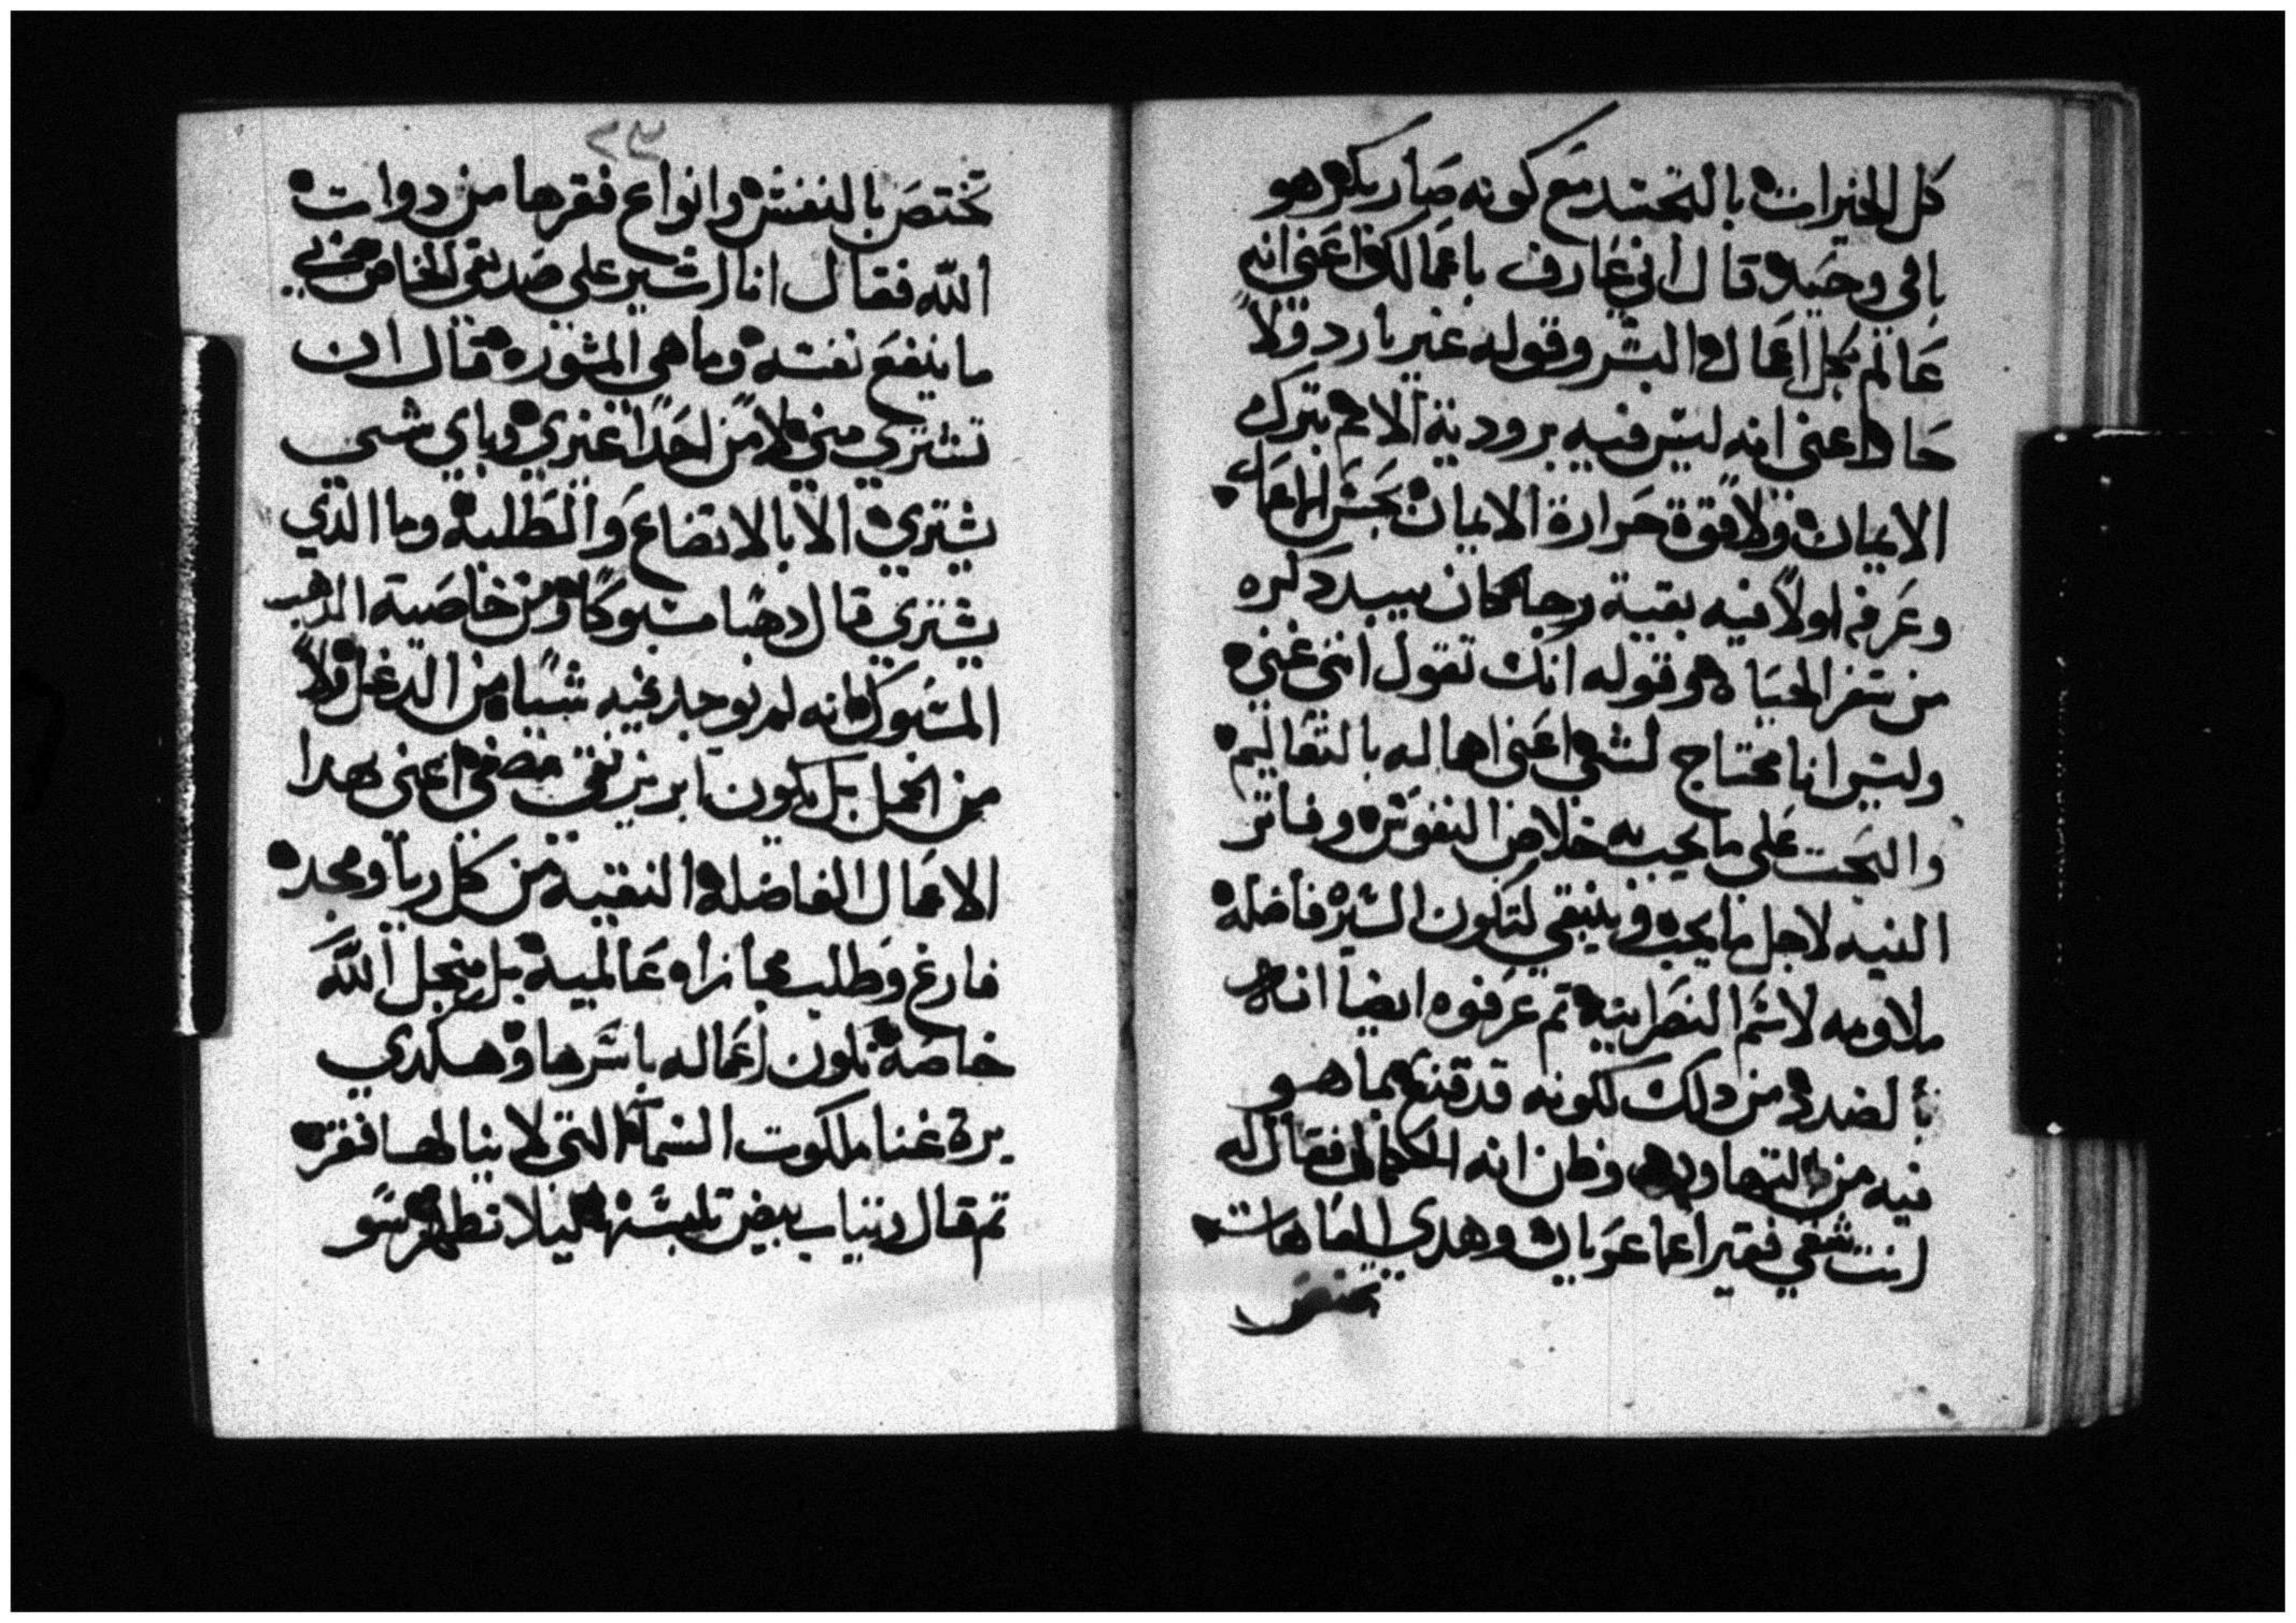 كل الخيرات بالتجسد مع كونه صار بكر هو
باقي وحيد قال اني عارف باعمالك اعني انه
عالم بكل اعمال البشر وقوله غير بارد ولا
حار اعني انه ليس فيه برودية الالم بترك
الايمان ولا قوة حرارة الايمان بحسن الاعمال
وعرفه اولاً فيه بقية رجا كان يبيد ذكره
من سفر الحياه وقوله انك تقول انني غني
وليس انا محتاج لشي اعني اهاله بالتعاليم
والبحت على ما يجب به خلاص النفوس وفاتر
النيه لاجل ما يجب وينبغي لتكون السيره فاضله
ملاومه لاسم النصرانيه تم عرفوه ايضاً انه
بالضد من دلك لكونه قد قنع بما هو
فيه من التهاون وظن انه الكمال فقال له
انت شقي فقير اعما عريان وهدي العاهات
تختص
٢٣
تختص بالنفس وانواع فقرها من دوات
الله فقال انا اشير على صديقي الخاص بي
ما ينفع نفسه وما هي المشوره قال ان
تشتري مني لا من احداً غيري وباي شي
يشتري الا بالاتضاع والطلبه وما الدي
يشتري قال دهبا مسبوكا ومن خاصية الدهب
المسبوك انه لم يوجد فيه شياً من الدغل ولا
من الخمل بل يكون ابريز نقي مصفي اعني بهدا
الاعمال الفاضله النقيه من كل ريا ومجد
فارغ وطلب مجازاه عالميه بل من اجل الله
خاصة تكون اعماله باسرها وهكدي
يرة غنا ملكوت السما التي لا ينالها فقر
تم قال وتياب بيض تلبسها ليلا تظهر سو